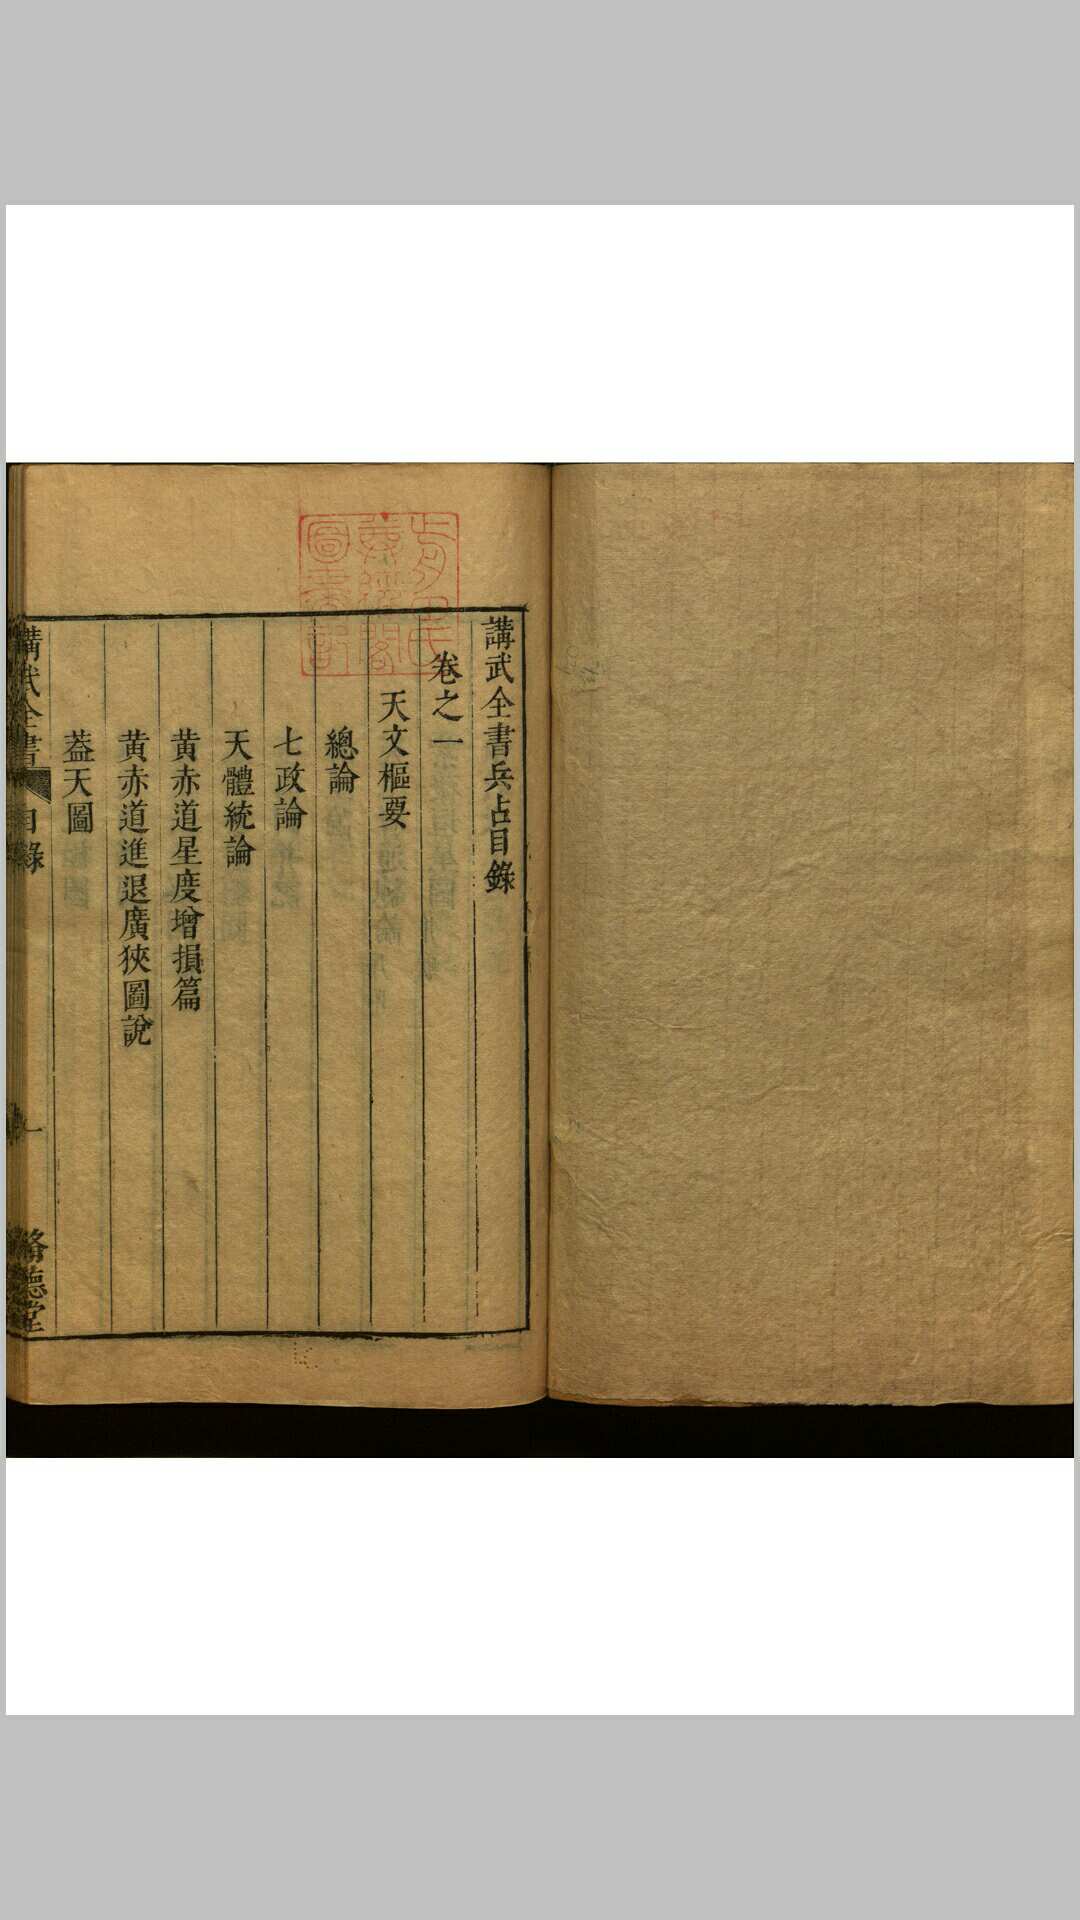 講武全書兵占目錄
卷之一
天文樞要
總論
七政論
天體統論
黃赤道星度增損篇
黃赤道進退廣狹圖說
葢天圖
講武全書
目錄
一
脩德堂